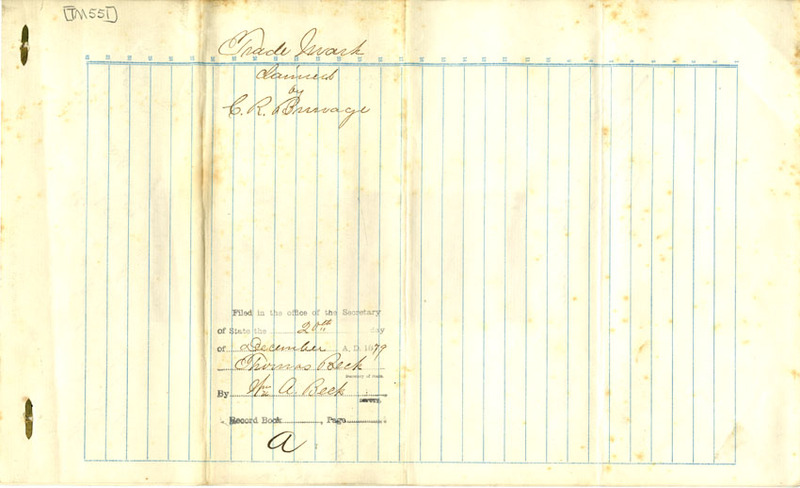 [TM551]
Trade Mark
Claimed
by
C. R. Brumage
Filed in the office of the Secretary
of State the 20th day
of December A. D. 1879
Thomas Beck
Secretary of State.
By Wm A. Beck
Deputy.
Record Book Page
A